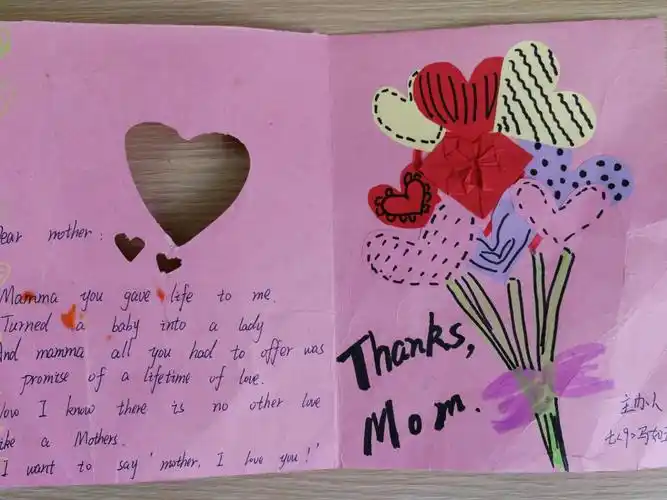 Dear mother:
Mamma you gave life to me.
Turned a baby into a lady
And mamma all you had to offer was
promise of a lifetime of love.
Now I know there is no other love
like a Mothers.
I want to say 'mother, I love you!'
Thanks,
Mom.
主办人